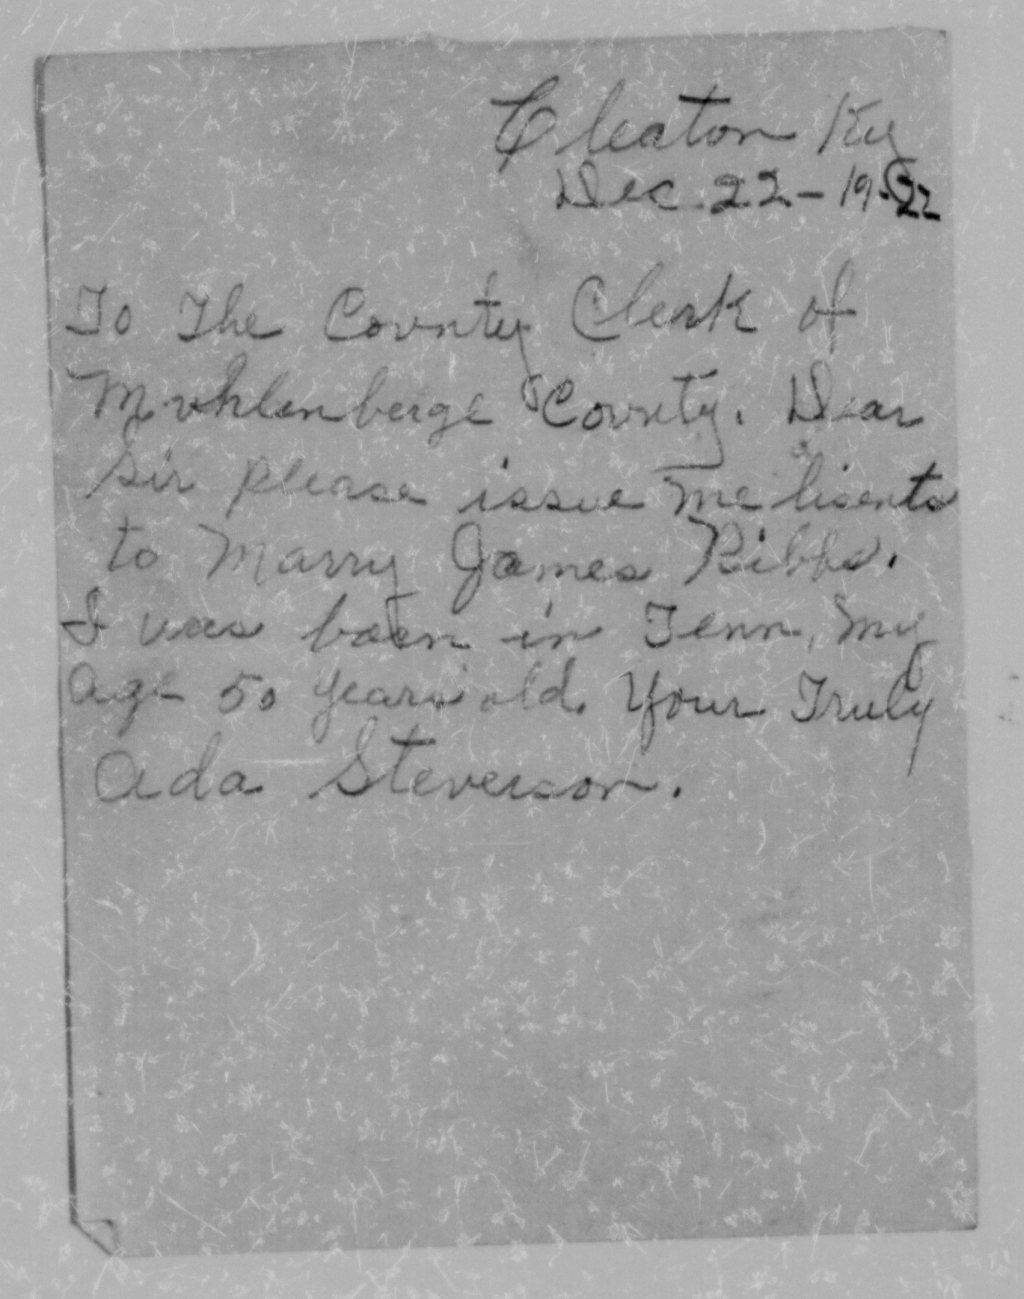 Cleaton Ky
Dec. 22-19-22
To The County Clerk of
Muhlenberge County. Dear
Sir please issue me lisents
to Marry James Ribbs.
I was born in Tenn, my
age 50 years old. Your Truly
Ada Steverson.